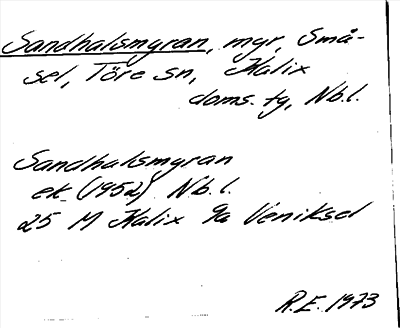 Sandhalsmyran, myr, Små-
sel, Töre sn, Kalix
doms. tg, Nb.l.
Sandhalsmyran
ek. (1952) Nb.l.
25 M Kalix 9a Veniksel
R.E. 1973